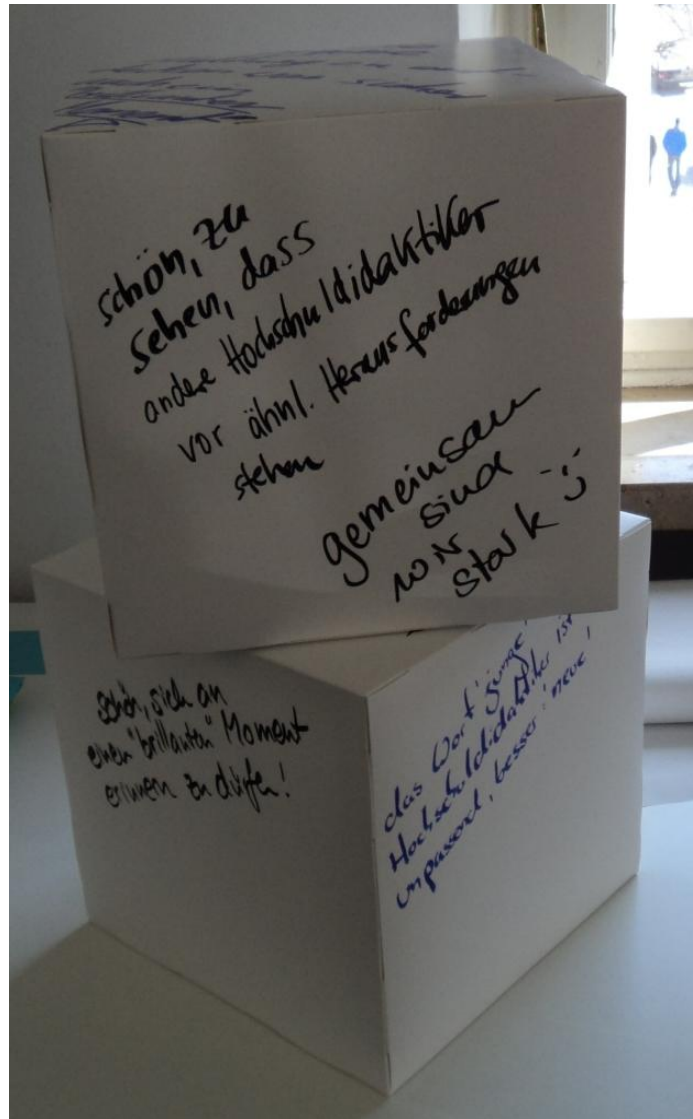 schön, zu
sehen, dass
andere Hochschuldidaktiker
vor ähnl. Herausforderungen
stehen
gemeinsam
sind
wir
stark :-)
schön, sich an
einen "brillanten" Moment
erinnern zu dürfen!
das Wort 'junge'
Hochschuldidaktiker ist
unpassend, besser: neue!